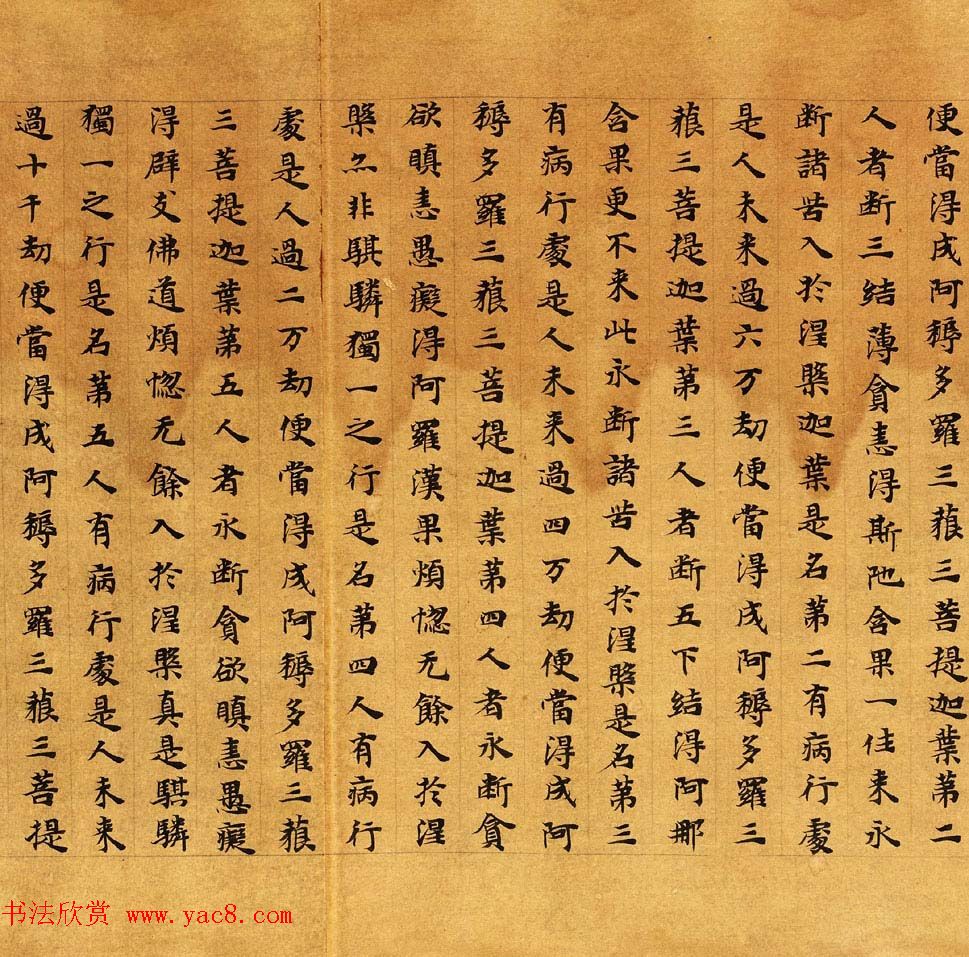 便當得成阿耨多羅三藐三菩提迦葉第二
人者断三結薄貪恚得斯陁含果一往来永
断諸苦入於涅槃迦葉是名第二有病行處
是人未来過六万劫便當得成阿耨多羅三
藐三菩提迦葉第三人者断五下結得阿那
含果更不来此永断諸苦入於涅槃是名第三
有病行處是人未来過四万劫便當得成阿
耨多羅三藐三菩提迦葉第四人者永断貪
欲瞋恚愚癡得阿羅漢果煩惚无餘入於涅
槃亦非騏驎獨一之行是名第四人有病行
處是人過二万劫便當得成阿耨多羅三藐
三菩提迦葉第五人者永断貪欲瞋恚愚癡
得辟支佛道煩惚无餘入於涅槃真是騏驎
獨一之行是名第五人有病行處是人未来
過十千劫便當得成阿耨多羅三藐三菩提
书法欣赏 www.yac8.com